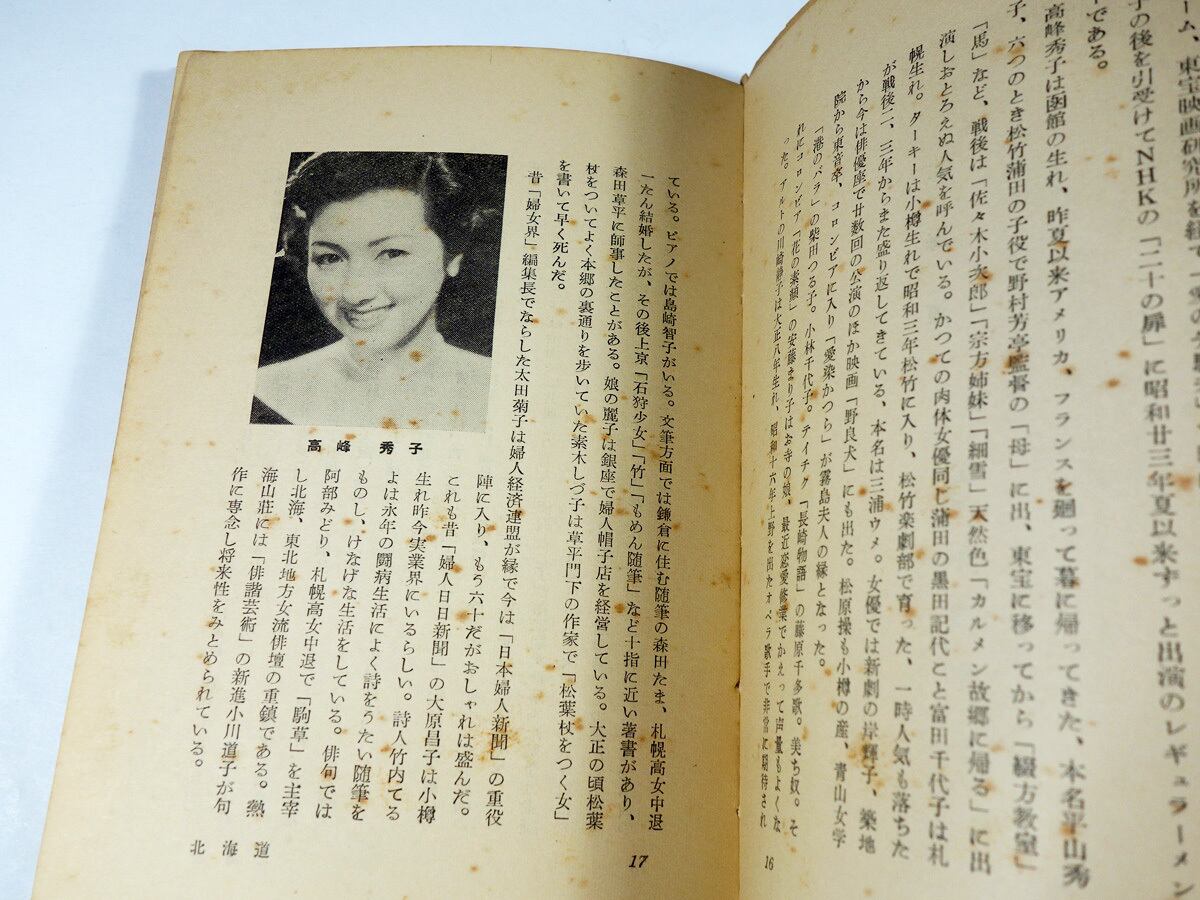 ーム、東宝映画研究所を経て
子の後を引受けてNHKの「二十の扉」に昭和廿三年夏以来ずっと出演のレギュラーメン
ーである。
高峰秀子は函館の生れ、昨夏以来アメリカ、フランスを廻って暮に帰ってきた、本名平山秀
子、六つのとき松竹蒲田の子役で野村芳亭監督の「母」に出、東宝に移ってから「綴方教室」
「馬」など、戦後は「佐々木小次郎」「宗方姉妹」「細雪」天然色「カルメン故郷に帰る」に出
演しおとろえぬ人気を呼んでいる。かつての肉体女優同じ蒲田の黒田記代こと富田千代子は札
幌生れ。ターキーは小樽生れで昭和三年松竹に入り、松竹楽劇部で育った、一時人気も落ちた
が戦後二、三年からまた盛り返してきている、本名は三浦ウメ。女優では新劇の岸輝子、築地
から今は俳優座で廿数回の公演のほか映画「野良犬」にも出た。松原操も小樽の産、青山女学
院から東音卒、コロンビアに入り「愛染かつら」が霧島夫人の縁となった。
「港のバラ」の柴田つる子。小林千代子。テイチク「長崎物語」の藤原千多歌。美ち奴。そ
れにコロンビア「花の素顔」の安藤まり子はお寺の娘、最近恋愛修業でかえって声量もよくな
った。アルトの川崎静子は大正八年生れ、昭和十六年上野を出たオペラ歌手で非常に期待され
16
ている。ピアノでは島崎智子がいる。文筆方面では鎌倉に住む随筆の森田たま、札幌高女中退
一たん結婚したが、その後上京「石狩少女」「竹」「もめん随筆」など十指に近い著書があり、
森田草平に師事したことがある。娘の麗子は銀座で婦人帽子店を経営している。大正の頃松葉
杖をついてよく本郷の裏通りを歩いていた素木しづ子は草平門下の作家で「松葉杖をつく女」
を書いて早く死んだ。
昔「婦女界」編集長でならした太田菊子は婦人経済連盟が縁で今は「日本婦人新聞」の重役
陣に入り、もう六十だがおしゃれは盛んだ。
これも昔「婦人日日新聞」の大原昌子は小樽
生れ昨今実業界にいるらしい。詩人竹内てる
よは永年の闘病生活によく詩をうたい随筆を
ものし、けなげな生活をしている。俳句では
阿部みどり、札幌高女中退で「駒草」を主宰
し北海、東北地方女流俳壇の重鎮である。熱
海山荘には「俳諧芸術」の新進小川道子が句
作に専念し将来性をみとめられている。
高峰秀子
北海道
17